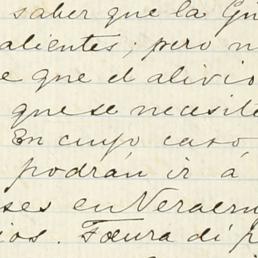 saber que la Gu
alientes; pero n
e que el alivio
que se necesite
En cuyo caso
podrán ir á
ses en Veracru
ios. Fuera di p